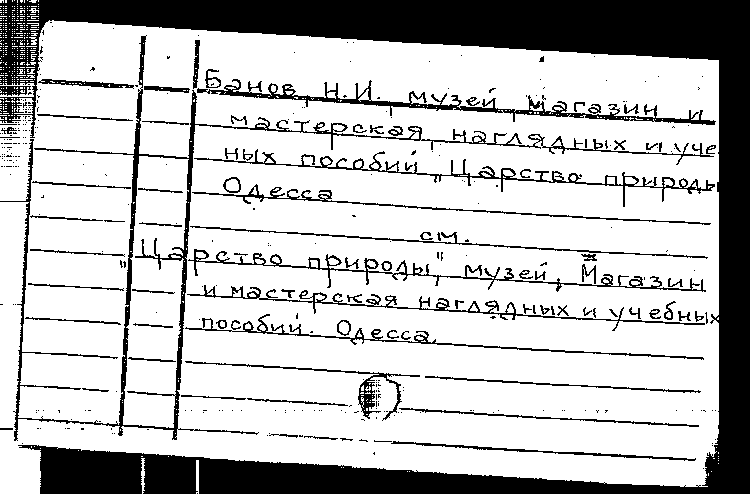 Банов, Н.И., музей, магазин и
мастерская, наглядных и уче
ных пособий "Царство природы
Одесса
см.
"Царство природы", музей, Магазин
и мастерская наглядных и учебных
пособий. Одесса.